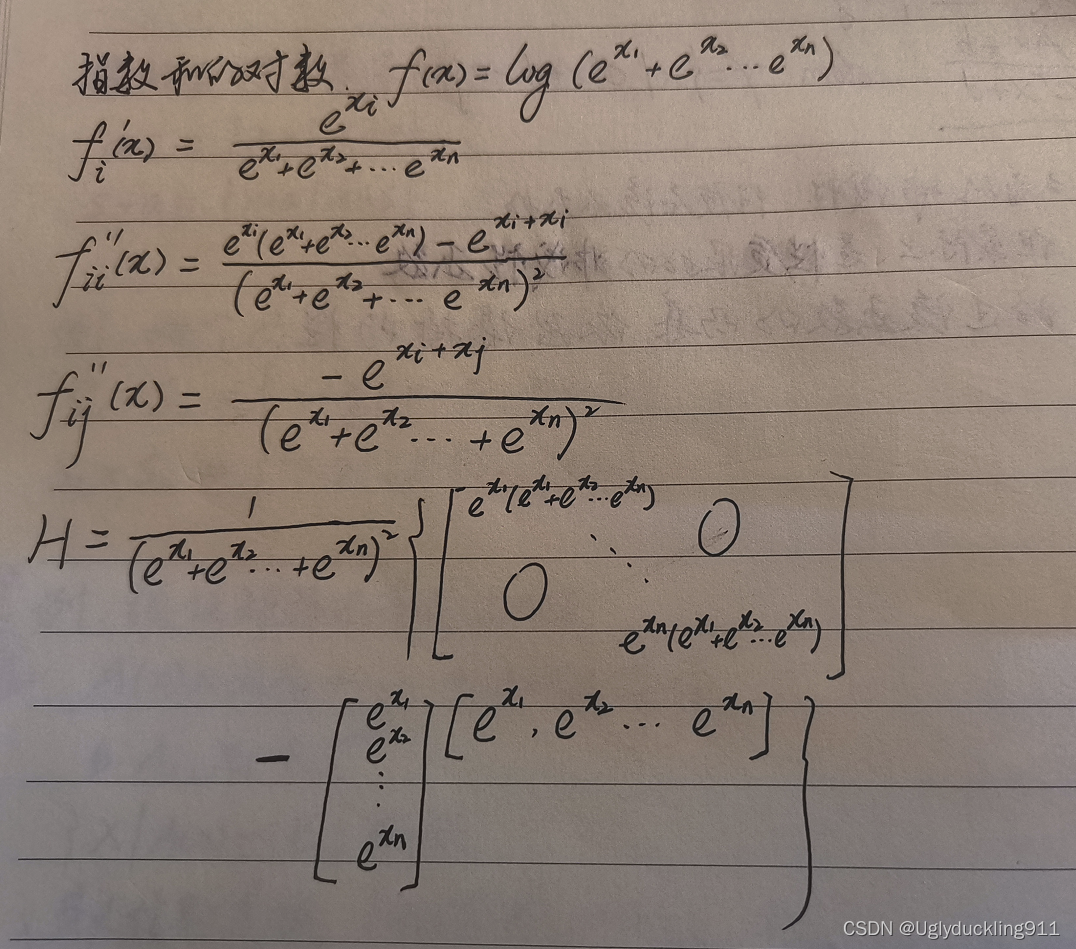 指数和的对数. f(x) = log (e^{x_1} + e^{x_2} ... e^{x_n})
f_i'(x) = \frac{e^{x_i}}{e^{x_1} + e^{x_2} + ... e^{x_n}}
f_{ii}''(x) = \frac{e^{x_i}(e^{x_1} + e^{x_2} ... e^{x_n}) - e^{x_i + x_i}}{(e^{x_1} + e^{x_2} + ... e^{x_n})^2}
f_{ij}''(x) = \frac{- e^{x_i + x_j}}{(e^{x_1} + e^{x_2} ... + e^{x_n})^2}
H = \frac{1}{(e^{x_1} + e^{x_2} ... + e^{x_n})^2} { [ e^{x_1}(e^{x_1} + e^{x_2} ... e^{x_n}) 0
⋱
0 e^{x_n}(e^{x_1} + e^{x_2} ... e^{x_n}) ]
- [ e^{x_1} e^{x_2} ⋮ e^{x_n} ] [ e^{x_1}, e^{x_2} ... e^{x_n} ] }
CSDN @Uglyduckling911